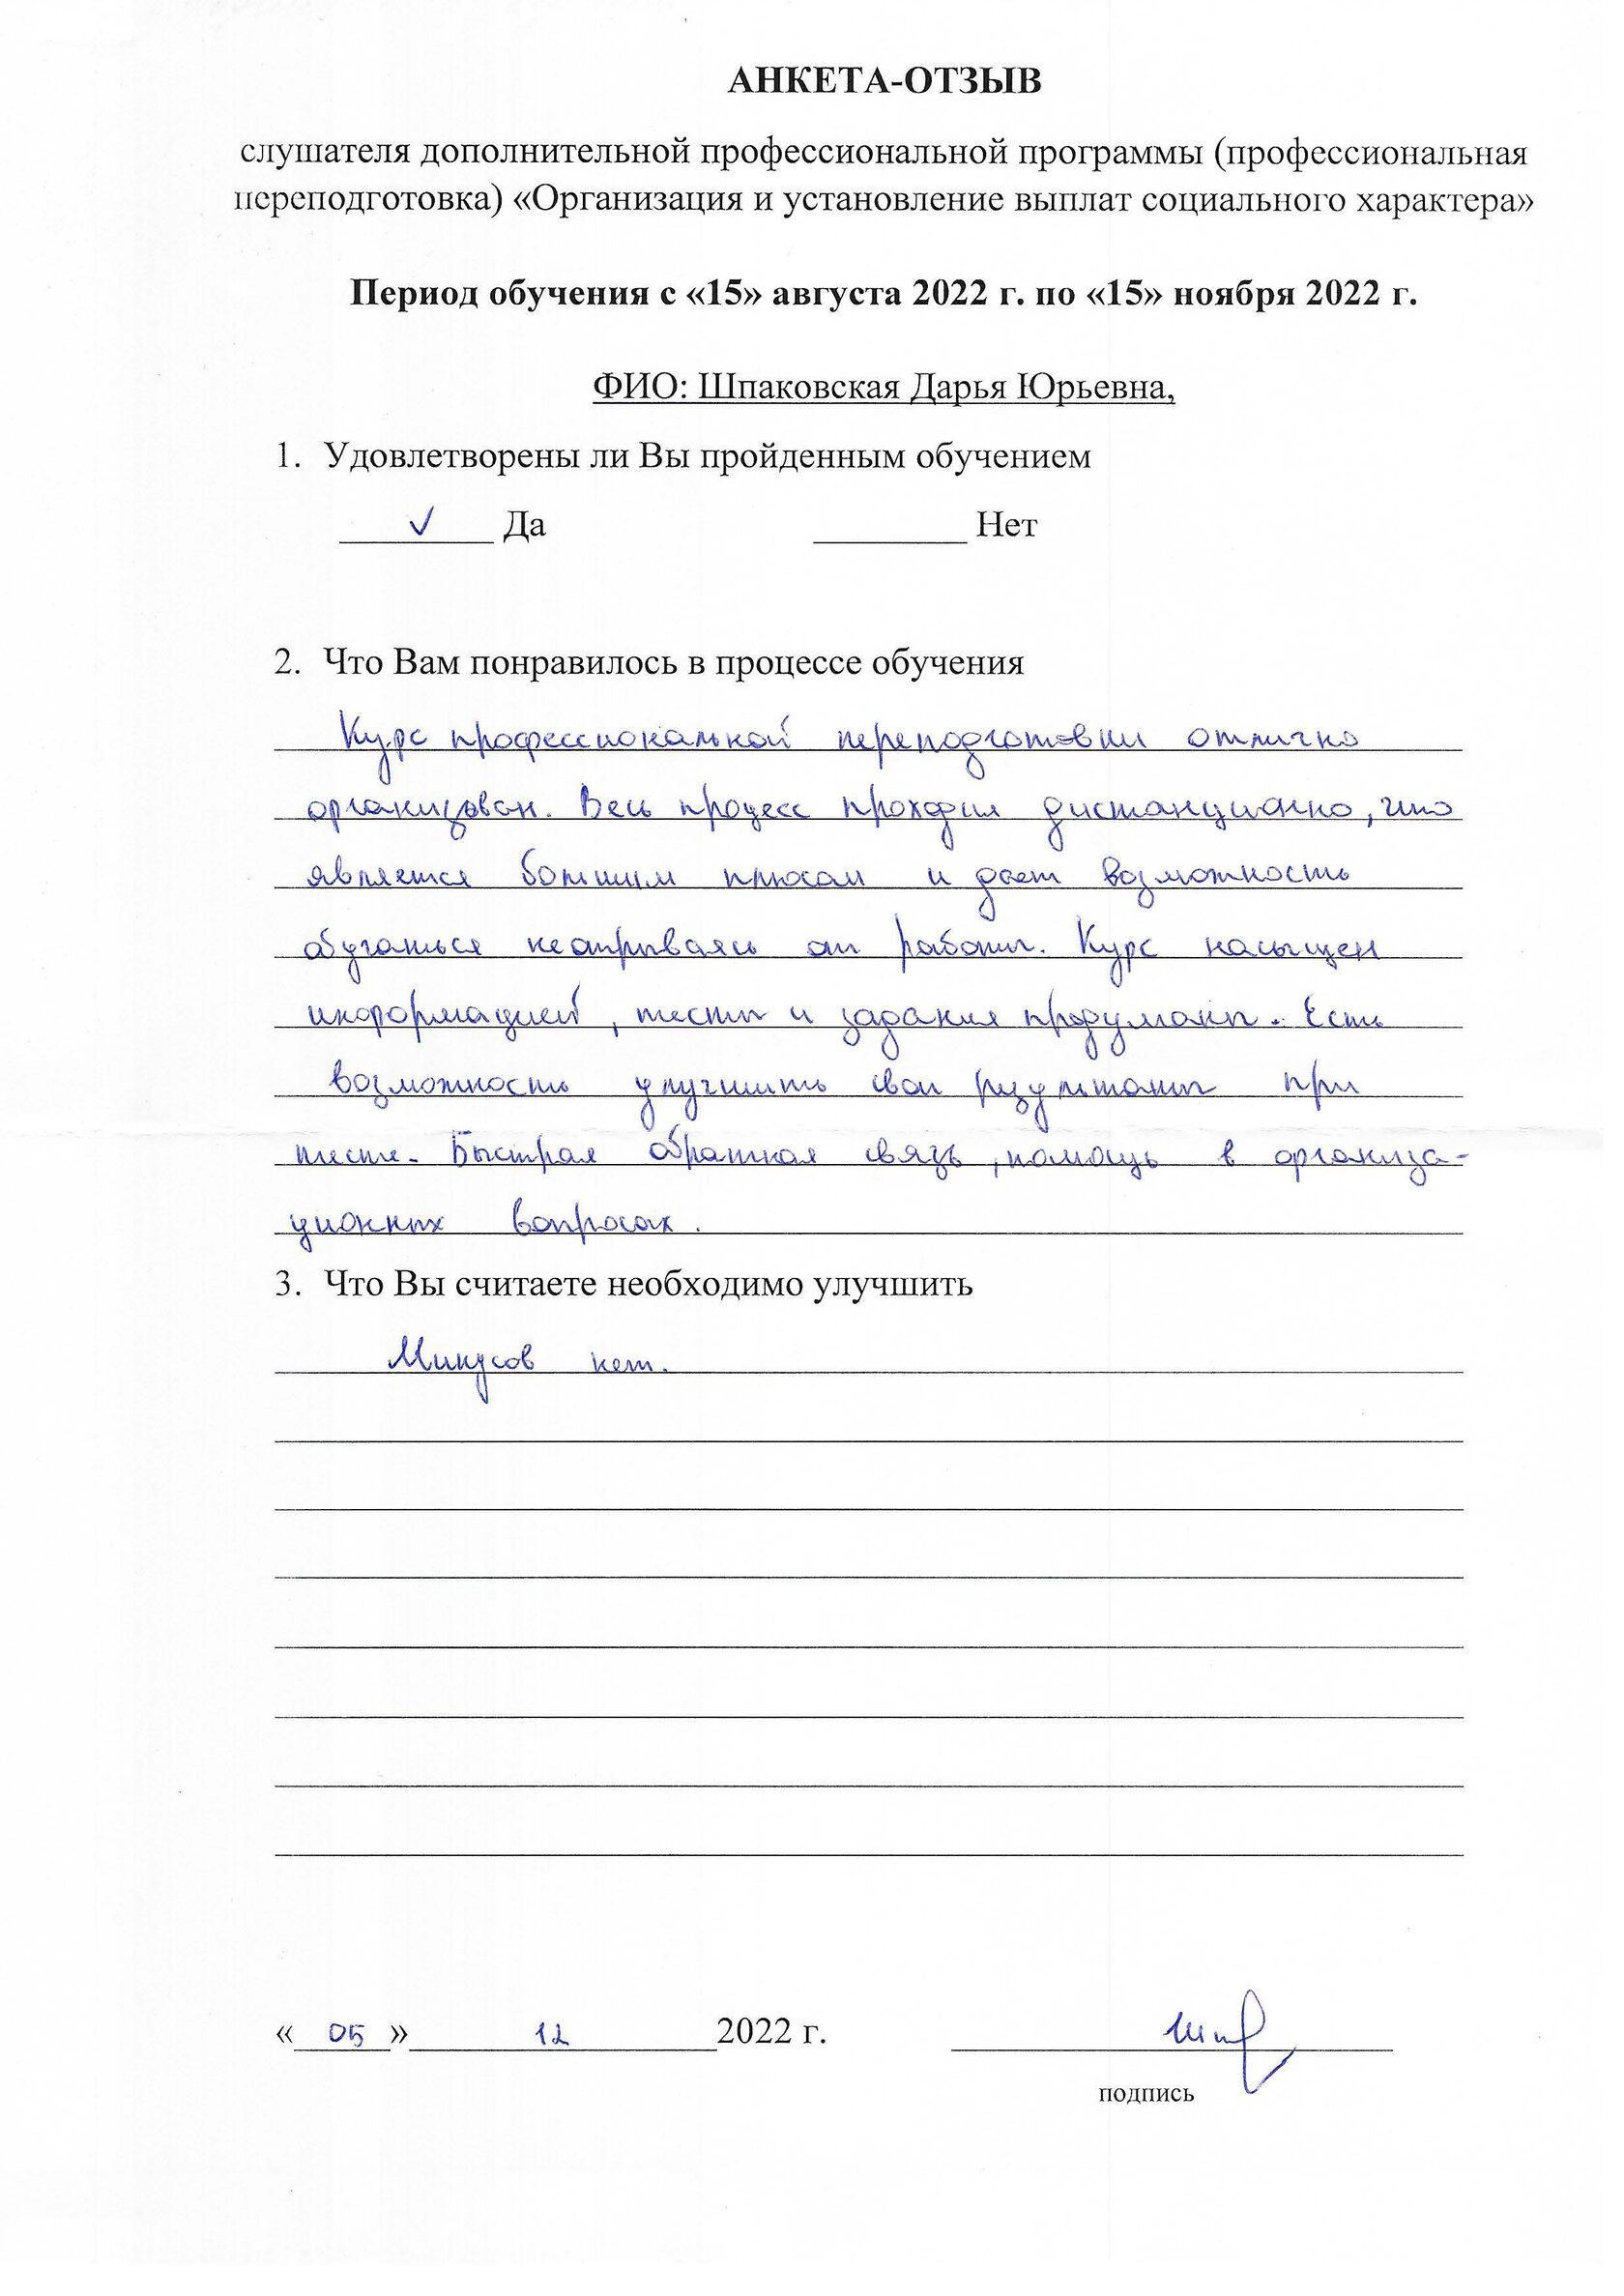 АНКЕТА-ОТЗЫВ
слушателя дополнительной профессиональной программы (профессиональная
переподготовка) «Организация и установление выплат социального характера»
Период обучения с «15» августа 2022 г. по «15» ноября 2022 г.
ФИО: Шпаковская Дарья Юрьевна,
1. Удовлетворены ли Вы пройденным обучением
✓ Да Нет
2. Что Вам понравилось в процессе обучения
Курс профессиональной переподготовки отлично
организован. Весь процесс проходил дистанционно, что
является большим плюсом и дает возможность
обучаться неотрываясь от работы. Курс насыщен
информацией, тесты и задания продуманы. Есть
возможность улучшить свои результаты при
тесте. Быстрая обратная связь, помощь в организа-
ционных вопросах.
3. Что Вы считаете необходимо улучшить
Минусов нет.
«05» 12 2022 г.
подпись